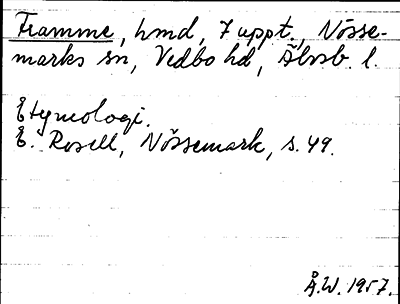 Framme, hmd, 7 uppt., Nösse-
marks sn, Vedbo hd, Älvsb. l.
Etymologi.
E. Rosell, Nössemark, s. 49.
Å.W. 1957.